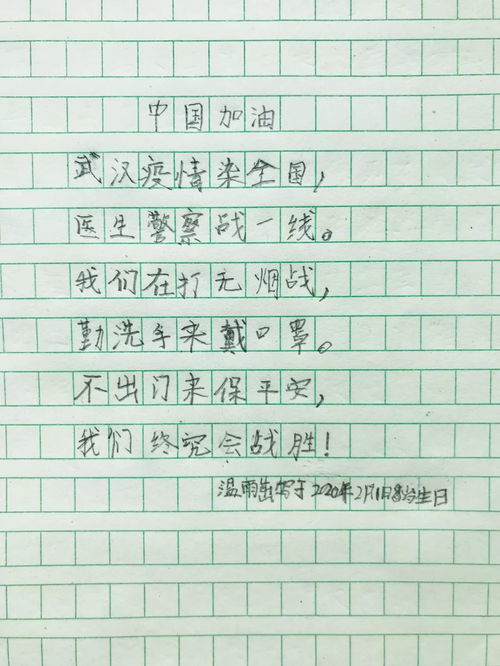 中国加油
武汉疫情染全国，
医生警察战一线。
我们在打无烟战，
勤洗手来戴口罩。
不出门来保平安，
我们终究会战胜！
温雨写于2020年2月1日8岁生日